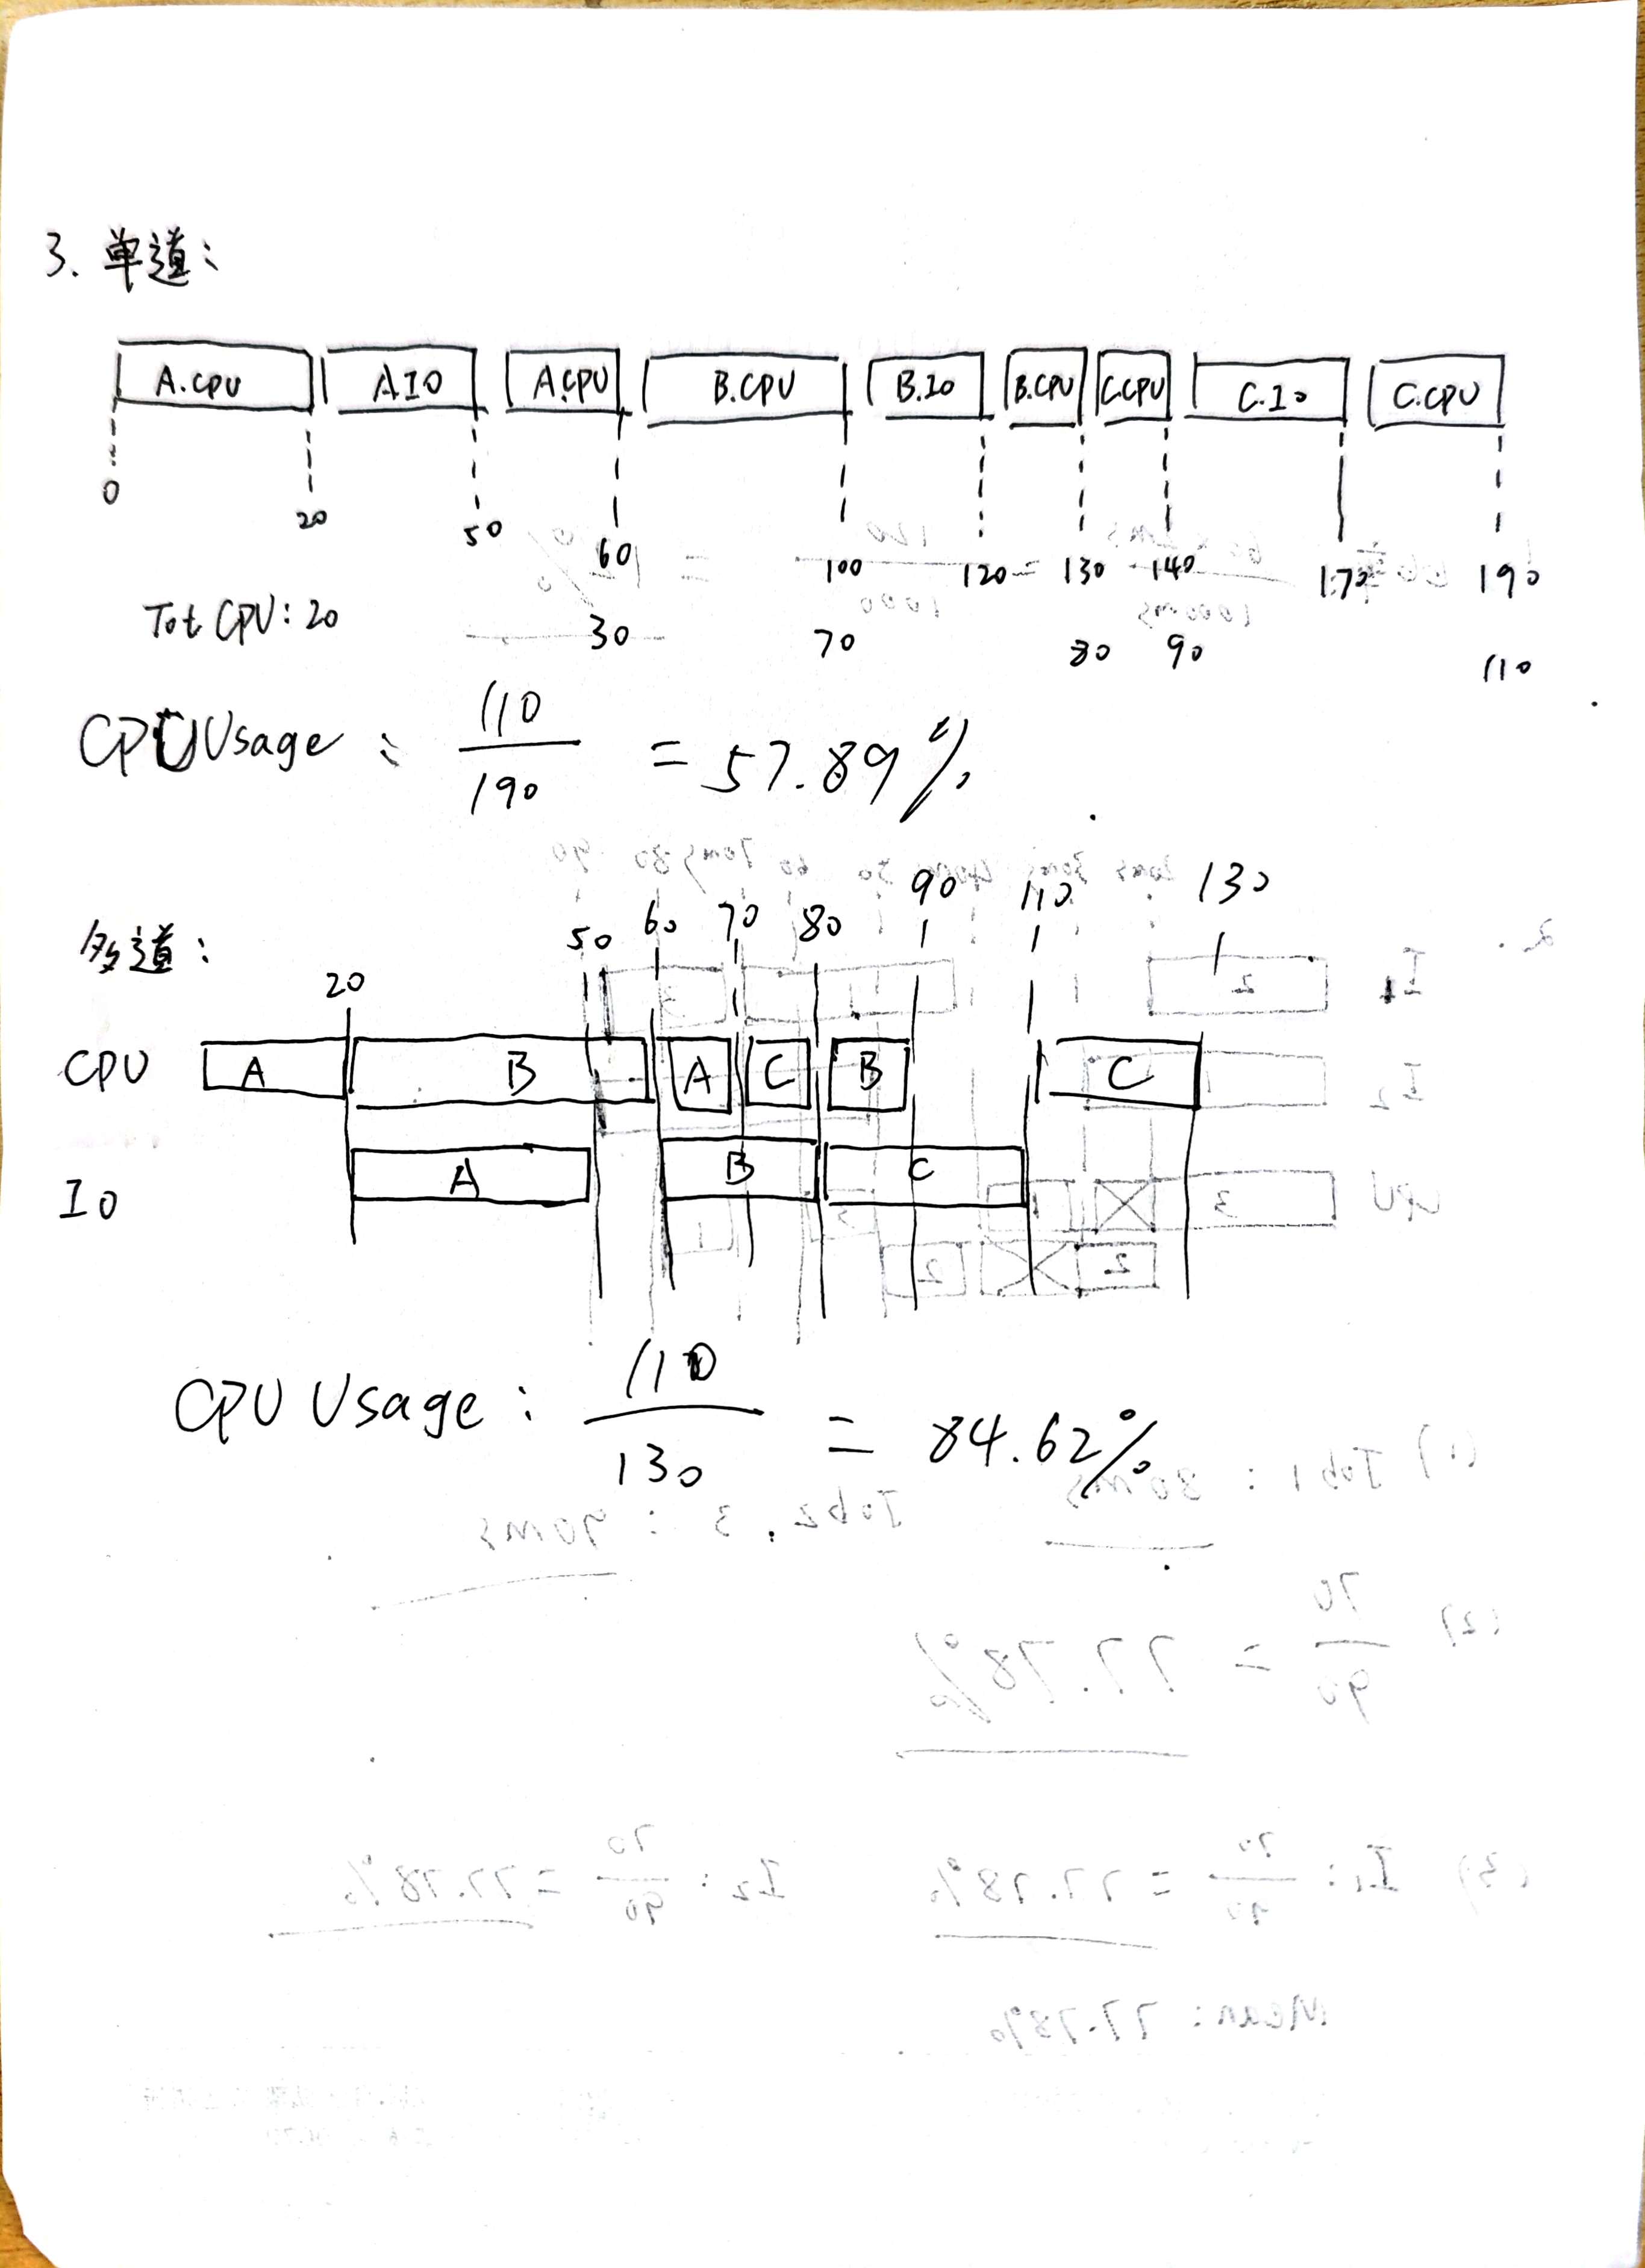 3. 单道:
A.CPU A IO A.CPU B.CPU B.IO B.CPU C.CPU C.IO C.CPU
0 20 50 60 100 120 130 140 170 190
Tot CPU: 20 30 70 80 90 110
CPU Usage: 110/190 = 57.89%
多道:
20 50 60 70 80 90 110 130
CPU A B A C B C
IO A B C
CPU Usage: 110/130 = 84.62%